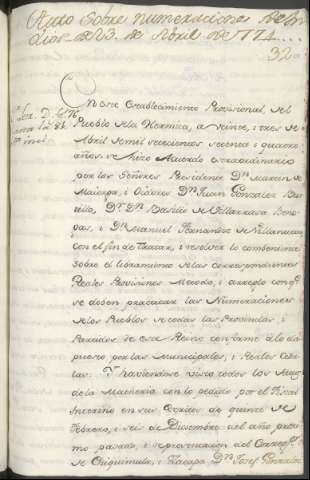 Auto Sobre numeraciones de In
dios de 23. de Abril de 1774....
32
En este Establecimiento Provisional, del
Pueblo de la Hermita, a veinte, i tres de
Abril de mil setecientos setenta i quatro
años: se hizo Acuerdo extraordinario
por los Señores Presidente Dn. Martin de
Maiorga, i Oidores Dn. Juan Gonzalez Bus
tillo, Dn. Basilio de Villarrasa Vene
gas, i Dn. Manuel Fernandez de Villanueva,
con el fin de tratar, i resolver lo combeniente
sobre el libramiento de las correspondientes
Reales Provisiones Metodo, i arreglo con qe.
se deben practicar las Numeraciones
de los Pueblos de todas las Provincias, i
Partidos de este Reino conforme á lo dis
puesto, por las Municipales, i Reales Cedu
las: Y haviendose visto todos los Autos
de la Materia con lo pedido por el Fiscal
Interino en sus Escritos de quince de
Febrero, i seis de Diciembre del año proxi
mo pasado, i representacion del Corregor.
de Chiquimula, i Zacapa Dn. Josef Gonzalez